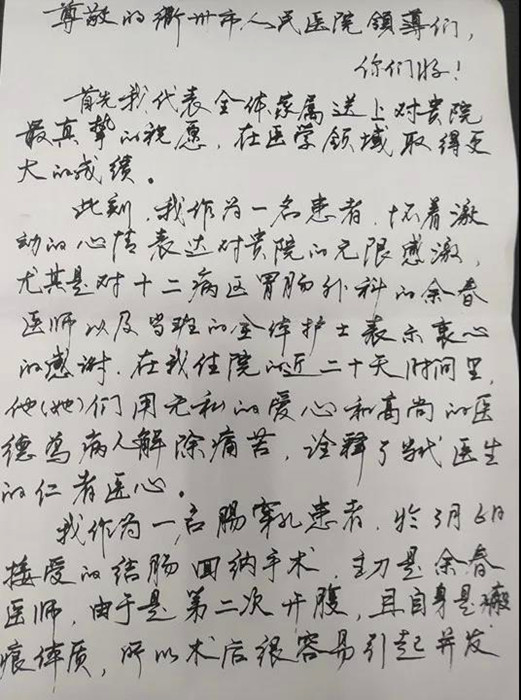 尊敬的衢州市人民医院领导们,
你们好!
首先我代表全体家属送上对贵院
最真挚的祝愿,在医学领域取得更
大的成绩。
此刻,我作为一名患者,怀着激
动的心情表达对贵院的无限感激,
尤其是对十二病区胃肠外科的余春
医师以及当班的全体护士表示衷心
的感谢,在我住院的近二十天时间里,
他(她)们用无私的爱心和高尚的医
德为病人解除痛苦,诠释了当代医生
的仁者医心。
我作为一名肠穿孔患者,於3月6日
接爱的结肠回纳手术,主刀是余春
医师,由于是第二次开腹,且自身是瘢
痕体质,所以术后很容易引起并发